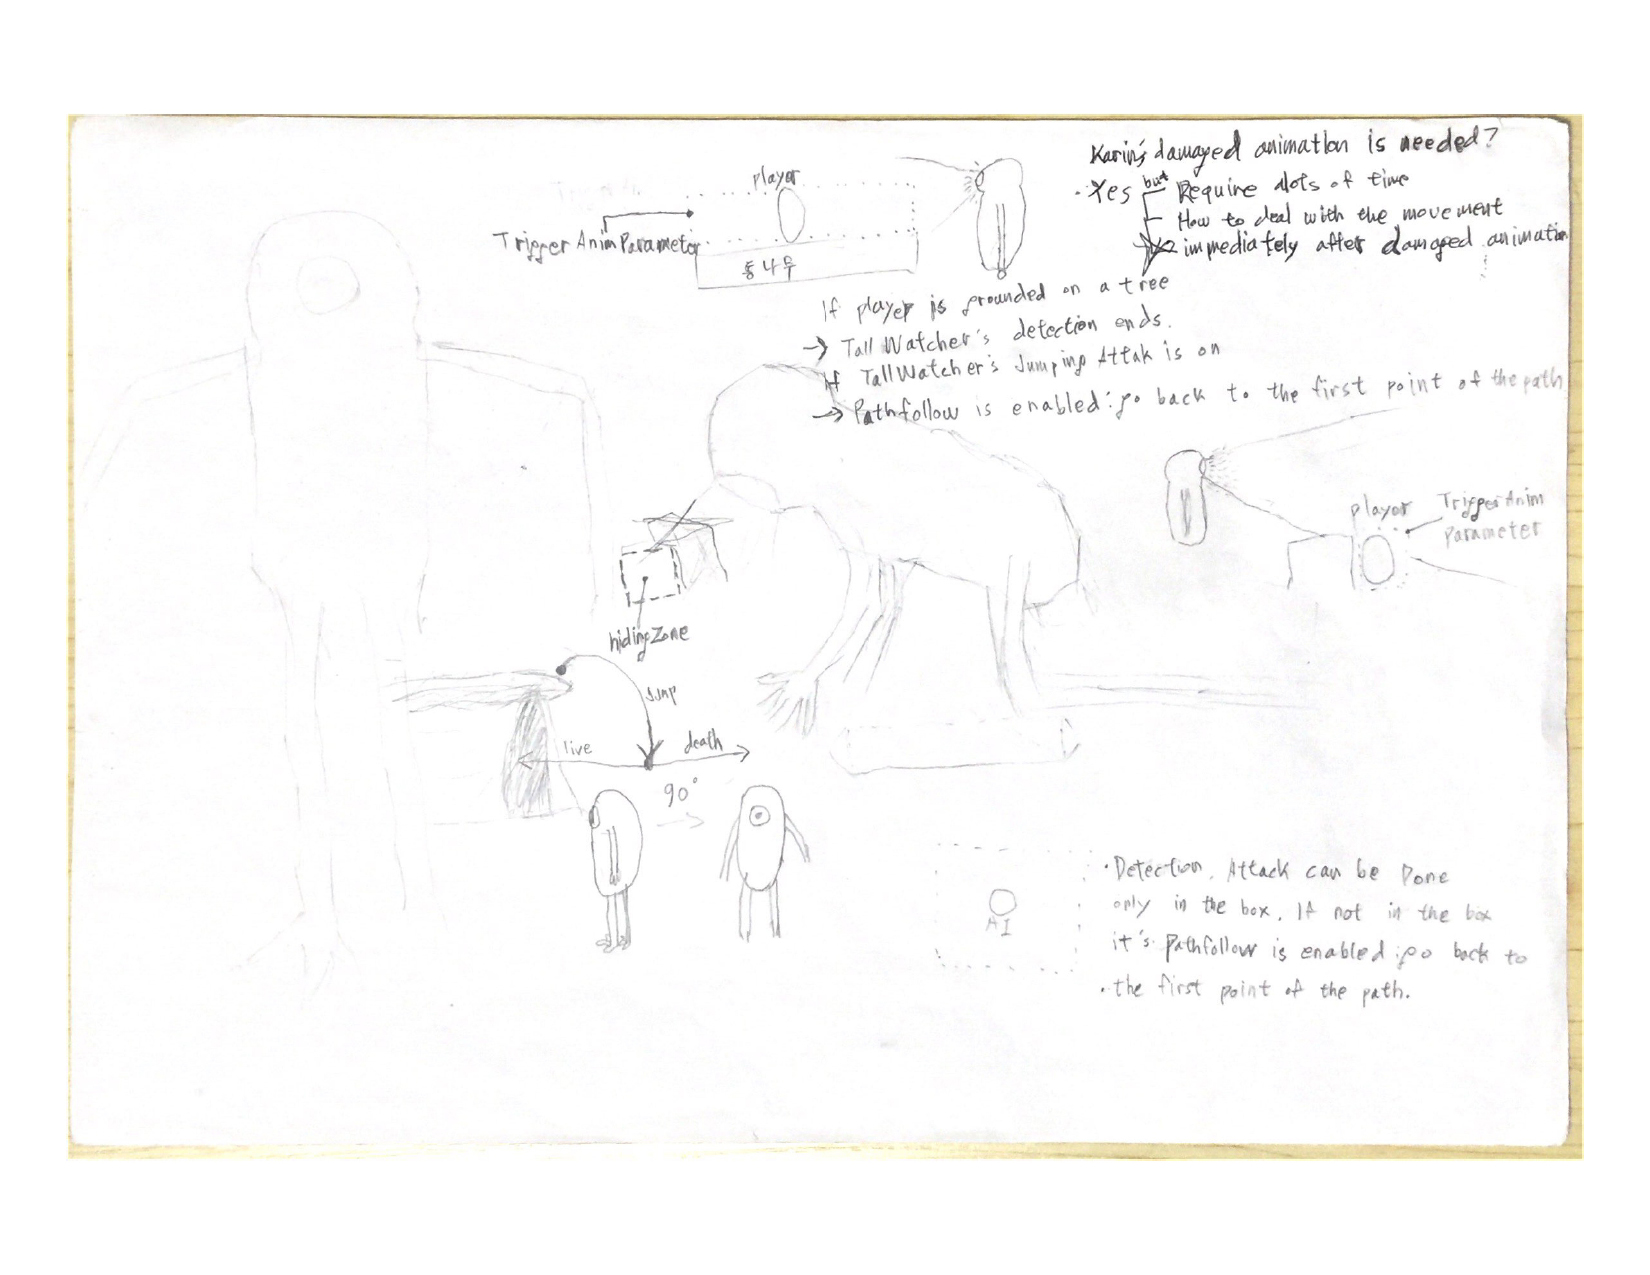 Karin's damaged animation is needed?
· Yes but Require alots of time
How to deal with the movement
immediately after damaged animation
player
Trigger Anim Parameter
통나무
If player is grounded on a tree
→ Tall Watcher's detection ends.
If TallWatcher's Jumping Attak is on
→ Pathfollow is enabled: go back to the first point of the path
player
TriggerAnim
Parameter
hidingZone
Jump
live
death
90°
AI
· Detection, Attack can be Done
only in the box. If not in the box
it's Pathfollow is enabled: go back to
· the first point of the path.